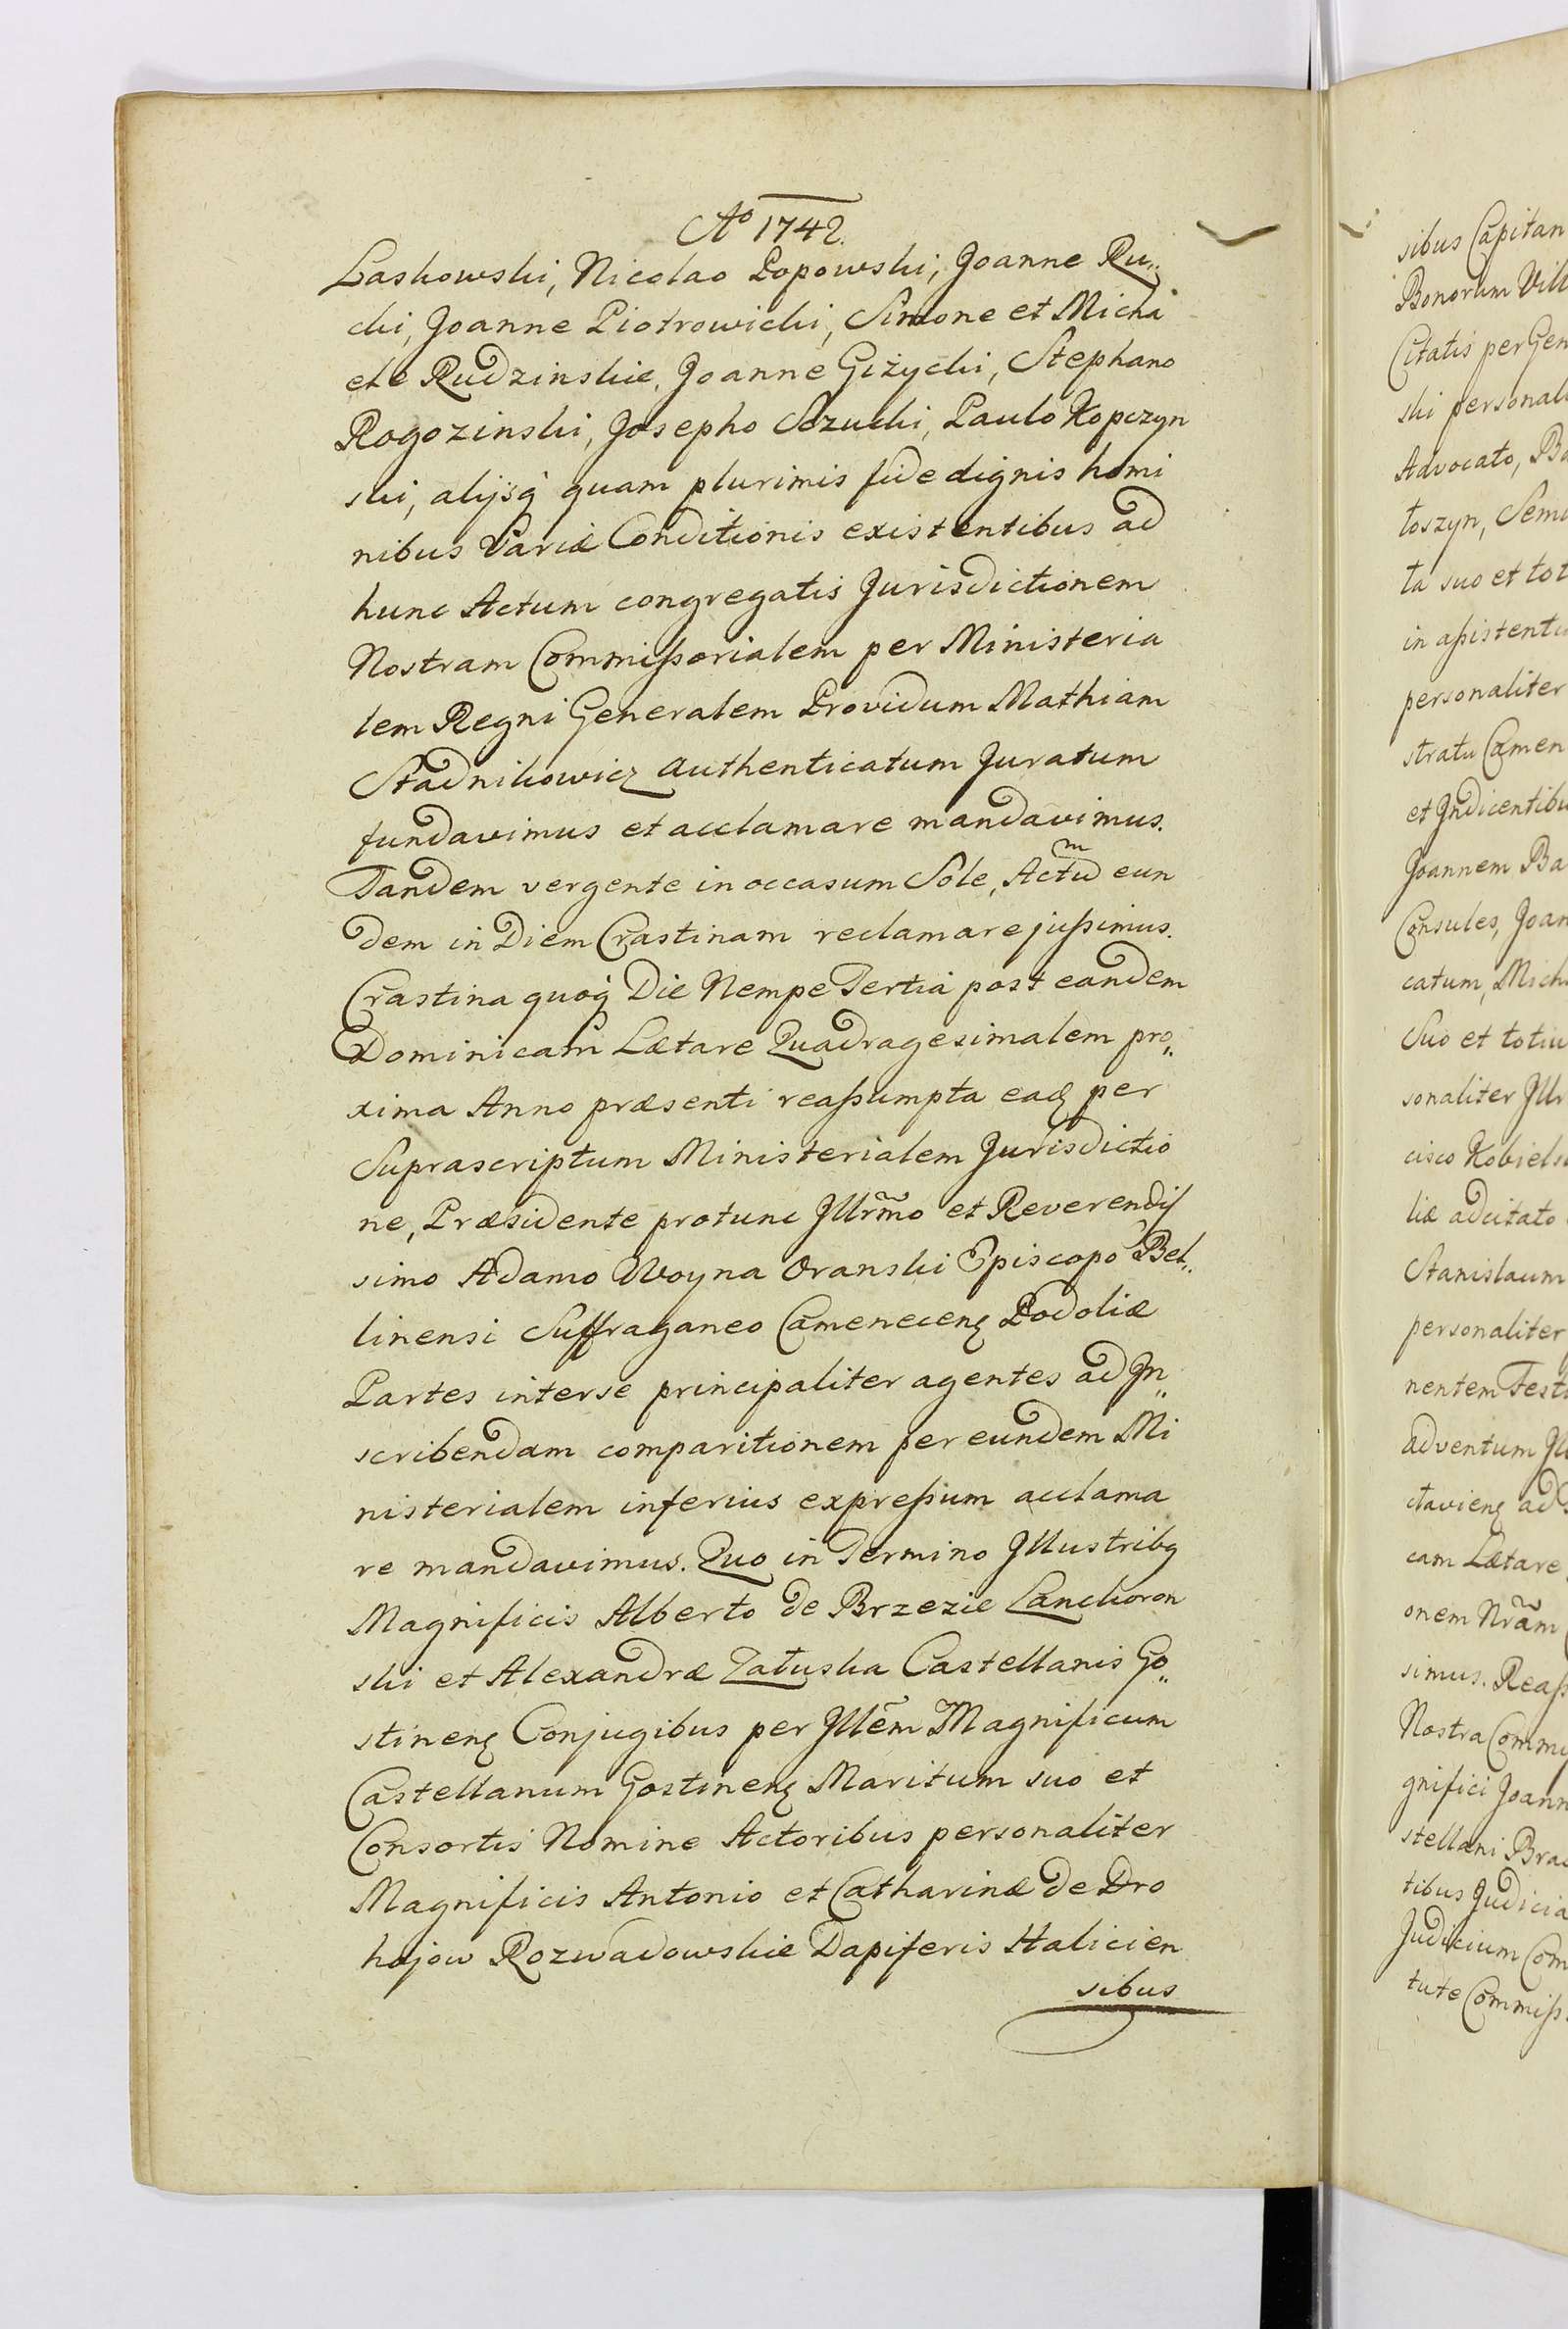 Ao 1742.
Laskowski, Nicolao Popowski, Joanne Ru„
cki, Joanne Piotrowicki, Simone et Micha
ele Rudzinskie, Joanne Giżycki, Stephano
Rogozinski, Josepho Szucki, Paulo Kopczyn
ski, alijsq́ quam plurimis fide dignis homi
nibus Variæ Conditionis existentibus ad
hunc Actum congregatis Jurisdictionem
Nostram Commißorialem per Ministeria
lem Regni Generalem Providum Mathiam
Stadnikowicz authenticatum Juratum
fundavimus et acclamare mandavimus.
Tandem vergente in occasum Sole, Actũ eun
dem in Diem Crastinam reclamare jußimus.
Crastina quoq́ Die Nempe Tertia post eandem
Dominicam Lætare Quadragesimalem pro„
xima Anno præsenti reaßumpta eaq per
Suprascriptum Ministerialem Jurisdictio
ne, Præsidente protunc Jllrm̃o et Reverendis
simo Adamo Woyna Oranski Episcopo Bel„
linensi Suffraganeo Camenecenȝ Podoliæ
Partes interse principaliter agentes ad Jn„
scribendam comparitionem per eundem Mi
nisterialem inferius expreßum acclama
re mandavimus. Quo in Termino Jllustribq
Magnificis Alberto de Brzezie Lanckoron
ski et Alexandræ Załuska Castellanis Go„
stinenȝ Conjugibus per Jllem̃ Magnificum
Castellanum Gostinenȝ Maritum suo et
Consortis Nomine Actoribus personaliter
Magnificis Antonio et Catharinæ de Dro
hojow Rozwadowskie Dapiferis Halicien
sibus
sibus Capitan
Bonorum Vill
Citatis per Gen
ski personali
Advocato, Ba
toszyn, Sem
ta suo et tot
in aßistenti
personaliter
stratu Camen
et Jndicentibu
Joannem Ba
Consules, Joan
catum, Mich
Suo et totiu
sonaliter Jllr
cisco Kobiels
liæ adcitato
Stanislaum
personaliter
nentem Test
adventum Jll
ctavienȝ ad
cam Lætare
onem Nrãm
simus. Reaß
Nostra Commiß
gnifici Joann
stellani Brac
tibus Judicia
Judicium Com
tute Commiß